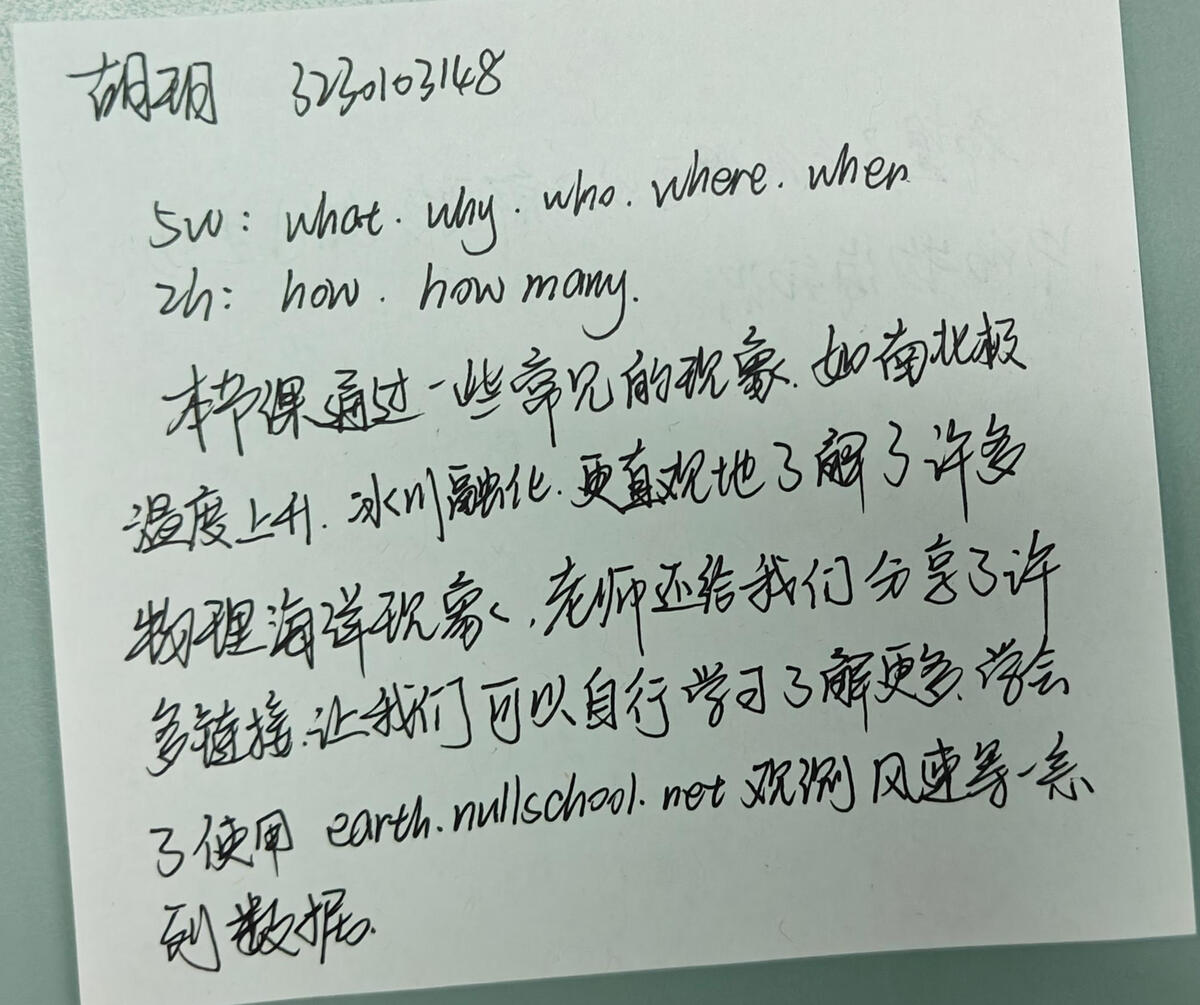 胡玥 3230103148
5w: what. why. who. where. when
2h: how. how many.
本节课通过一些常见的现象.如南北极
温度上升.冰川融化.更直观地了解了许多
物理海洋现象、.老师还给我们分享了许
多链接.让我们可以自行学习了解更多.学会
了使用 earth.nullschool.net 观测风速等一系
列数据.